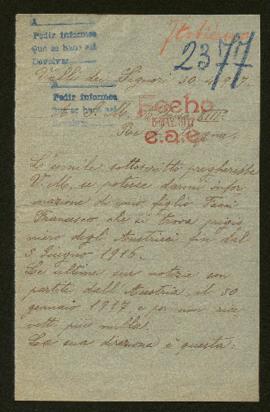 Italiano
2377
Pedir informes
Que se hace así
Devolver
Valli dei Signori 30
Pedir informes
Hecho
S. M.
XIII
e.a.e.
L'umile sottoscritto pregherebbe
V. M. se potesse darmi infor
mazione di mio figlio
Francesco che si trova prigio
niero degli Austriaci fin dal
3 Giugno 1916.
Le ultime sue notizie son
partite dall'Austria, il 30
gennaio 1917 e poi non rice
vetti più nulla.
La sua è questa: